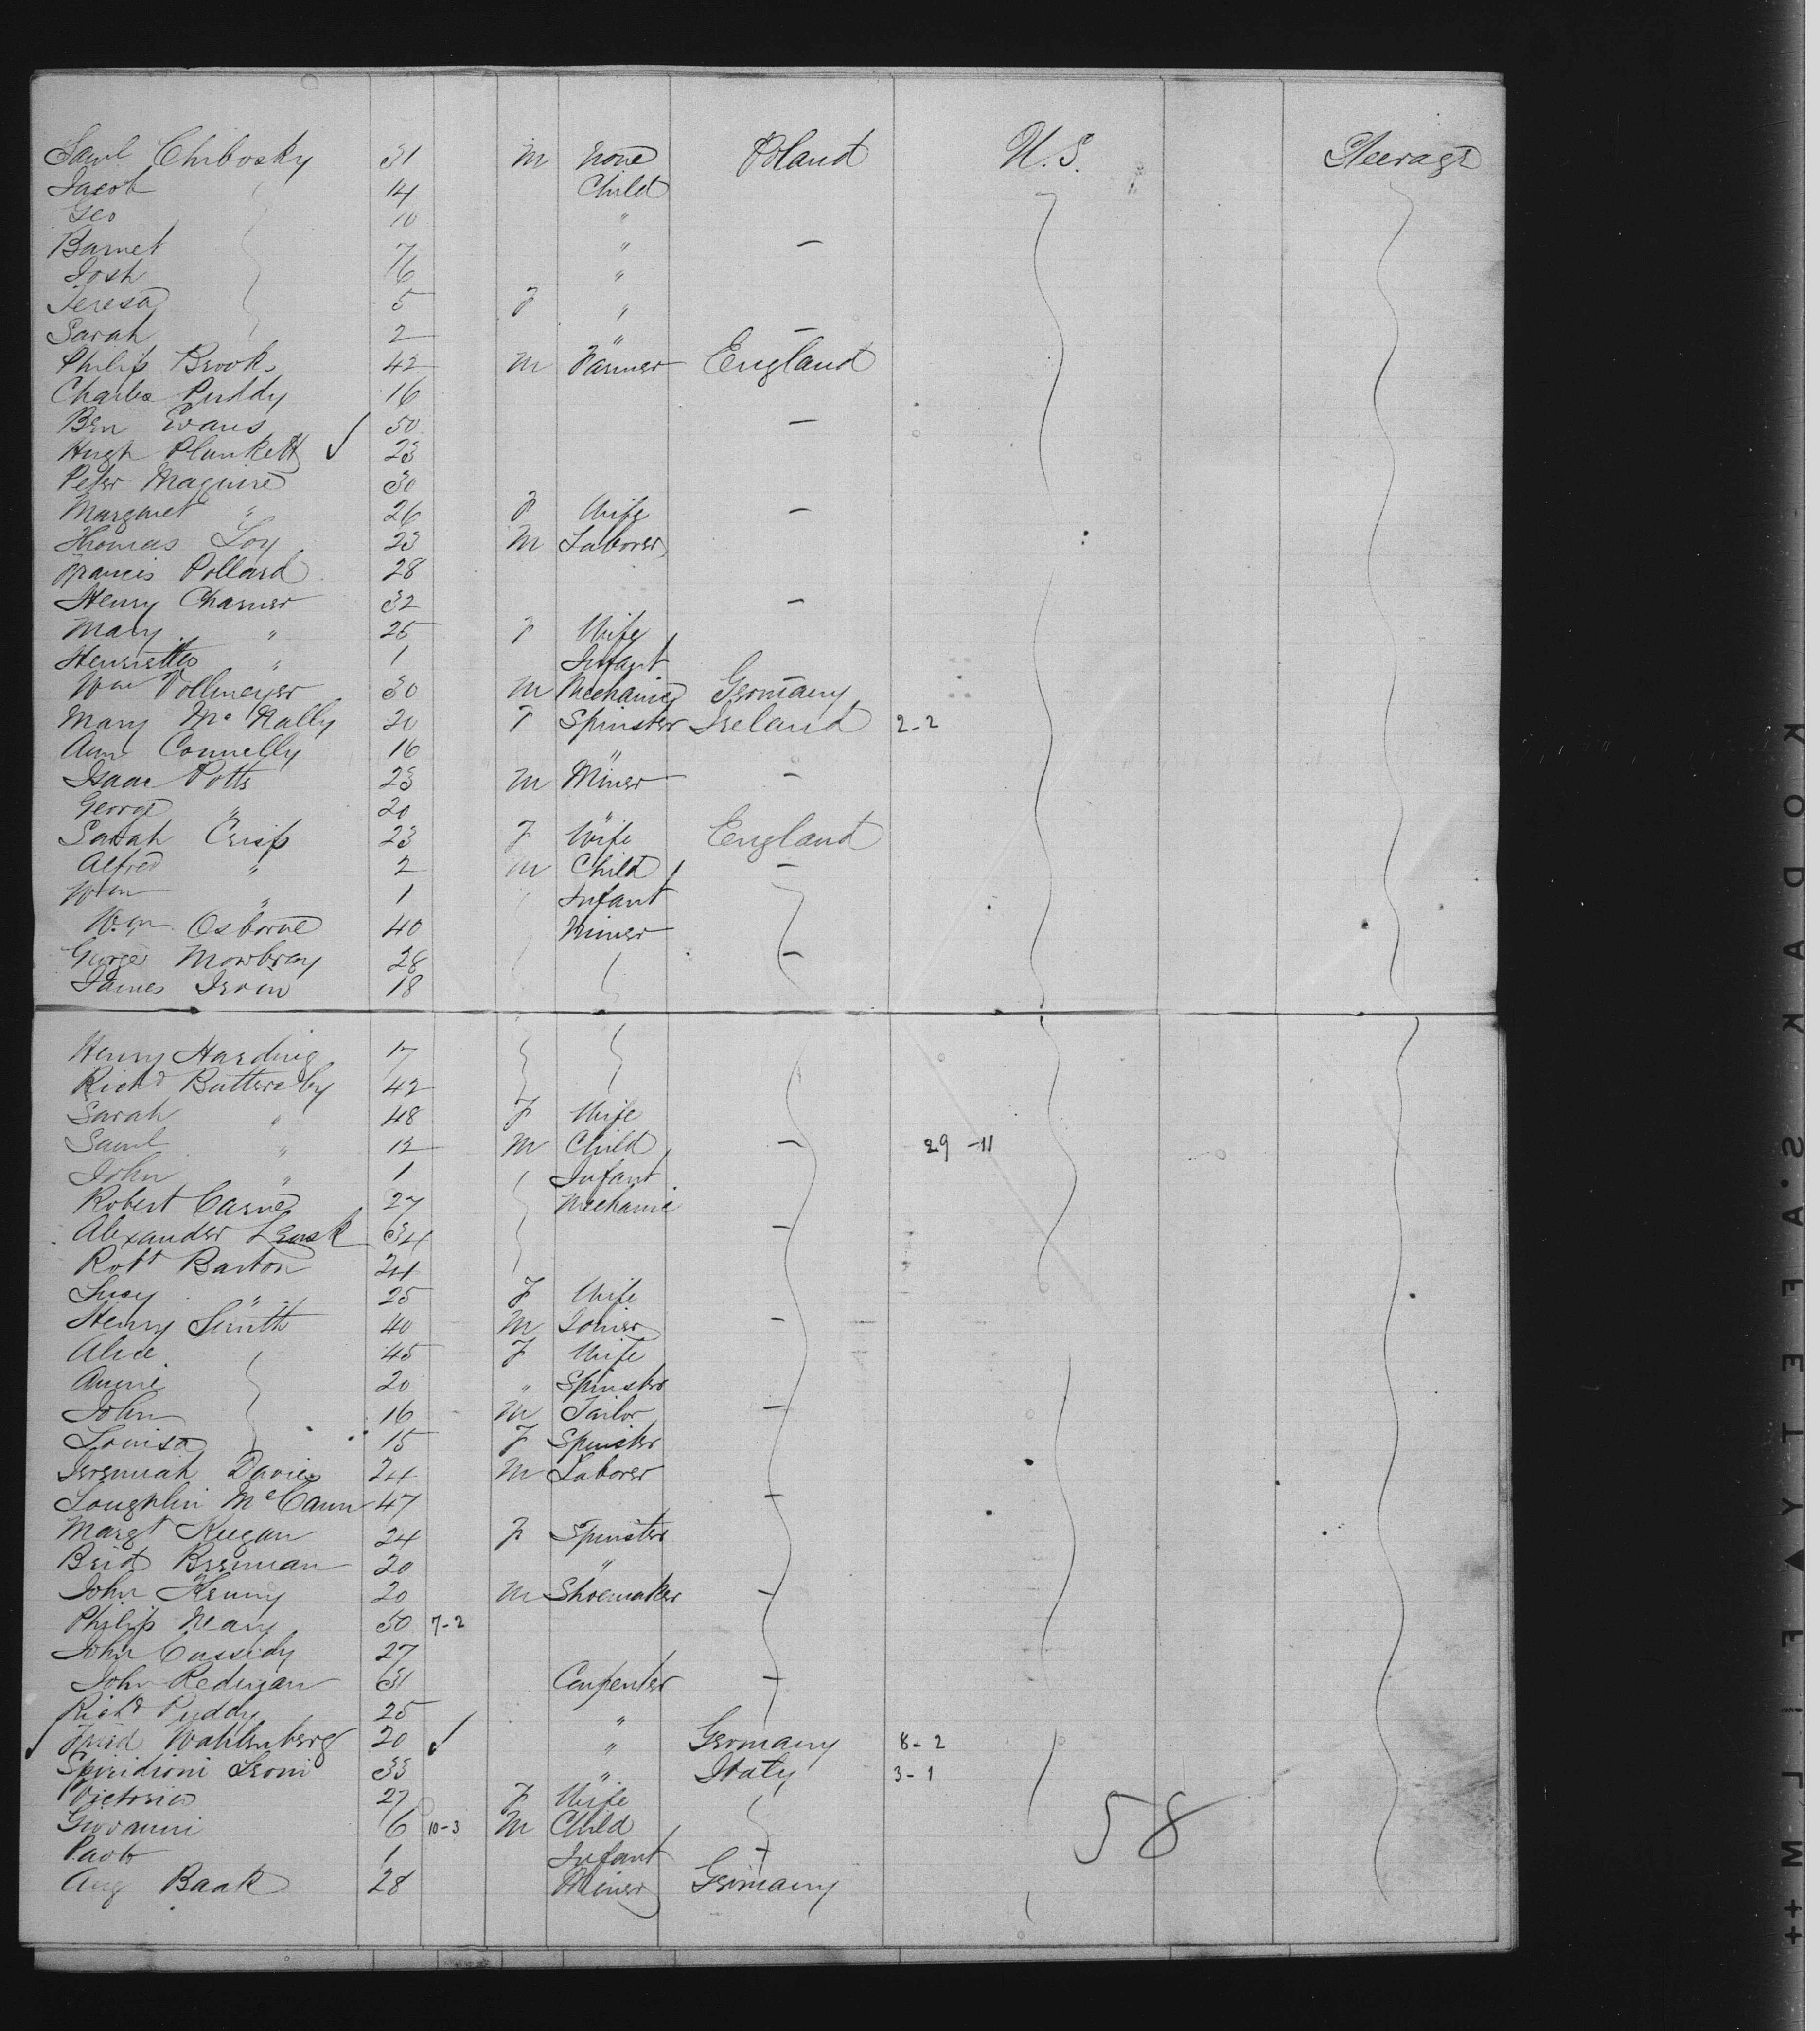 Saml Chibosky 31 M None Poland U.S. Steerage
Jacob 14 Child
Geo 10 "
Barnet 7 " –
Josh 6 "
Teresa 5 F "
Sarah 2 " –
Philip Brooks 42 M Farmer England
Charles Puddy 16
Ben Evans 50 –
Hugh Plunkett ✓ 23
Peter Maguire 30
Margaret " 26 F Wife –
Thomas Loy 23 M Laborer
Francis Pollard 28
Henry Charner 32 –
Mary " 25 F Wife
Henrietta " 1 Infant
Wm Vollmeyer 30 M Mechanic Germany
Mary Mc Nally 20 F Spinster Ireland 2-2
Ann Connelly 16 "
Isaac Potts 23 M Miner –
George " 20 "
Sarah Crisp 23 F Wife England
Alfred " 2 M Child –
Wm " 1 Infant
Wm Osborne 40 Miner
George Mowbray 28 –
James Irvin 18
Henry Harding 17
Richd Buttersby 42
Sarah " 48 F Wife
Saml " 12 M Child – 29-11
John " 1 Infant
Robert Carne 27 Mechanic
Alexander 34 –
Robt Barton 24
Lucy " 25 F Wife
Henry Smith 40 M Joiner –
Alice 45 F Wife
Annie 20 " Spinster
John 16 M Tailor –
Louisa 15 F Spinster
Jeremiah Davies 24 M Laborer
Loughlin McCann 47 –
Margt Keegan 24 F Spinster
Brid Brennan 20 "
John Kenny 20 M Shoemaker –
Philip Neary 50 7-2
John Cassidy 27
John Redigan 31 Carpenter –
Richd Puddy 25 "
✓ Fried Wahlenberg 20 ✓ " Germany 8-2
Spiridioni Leoni 33 " Italy 3-1
Victoria 27 F Wife
Giovanni 6 10-3 M Child 58
Paolo 1 Infant –
Aug Baak 28 Miner Germany
KODAK S.AFETY ▲ FILM ++